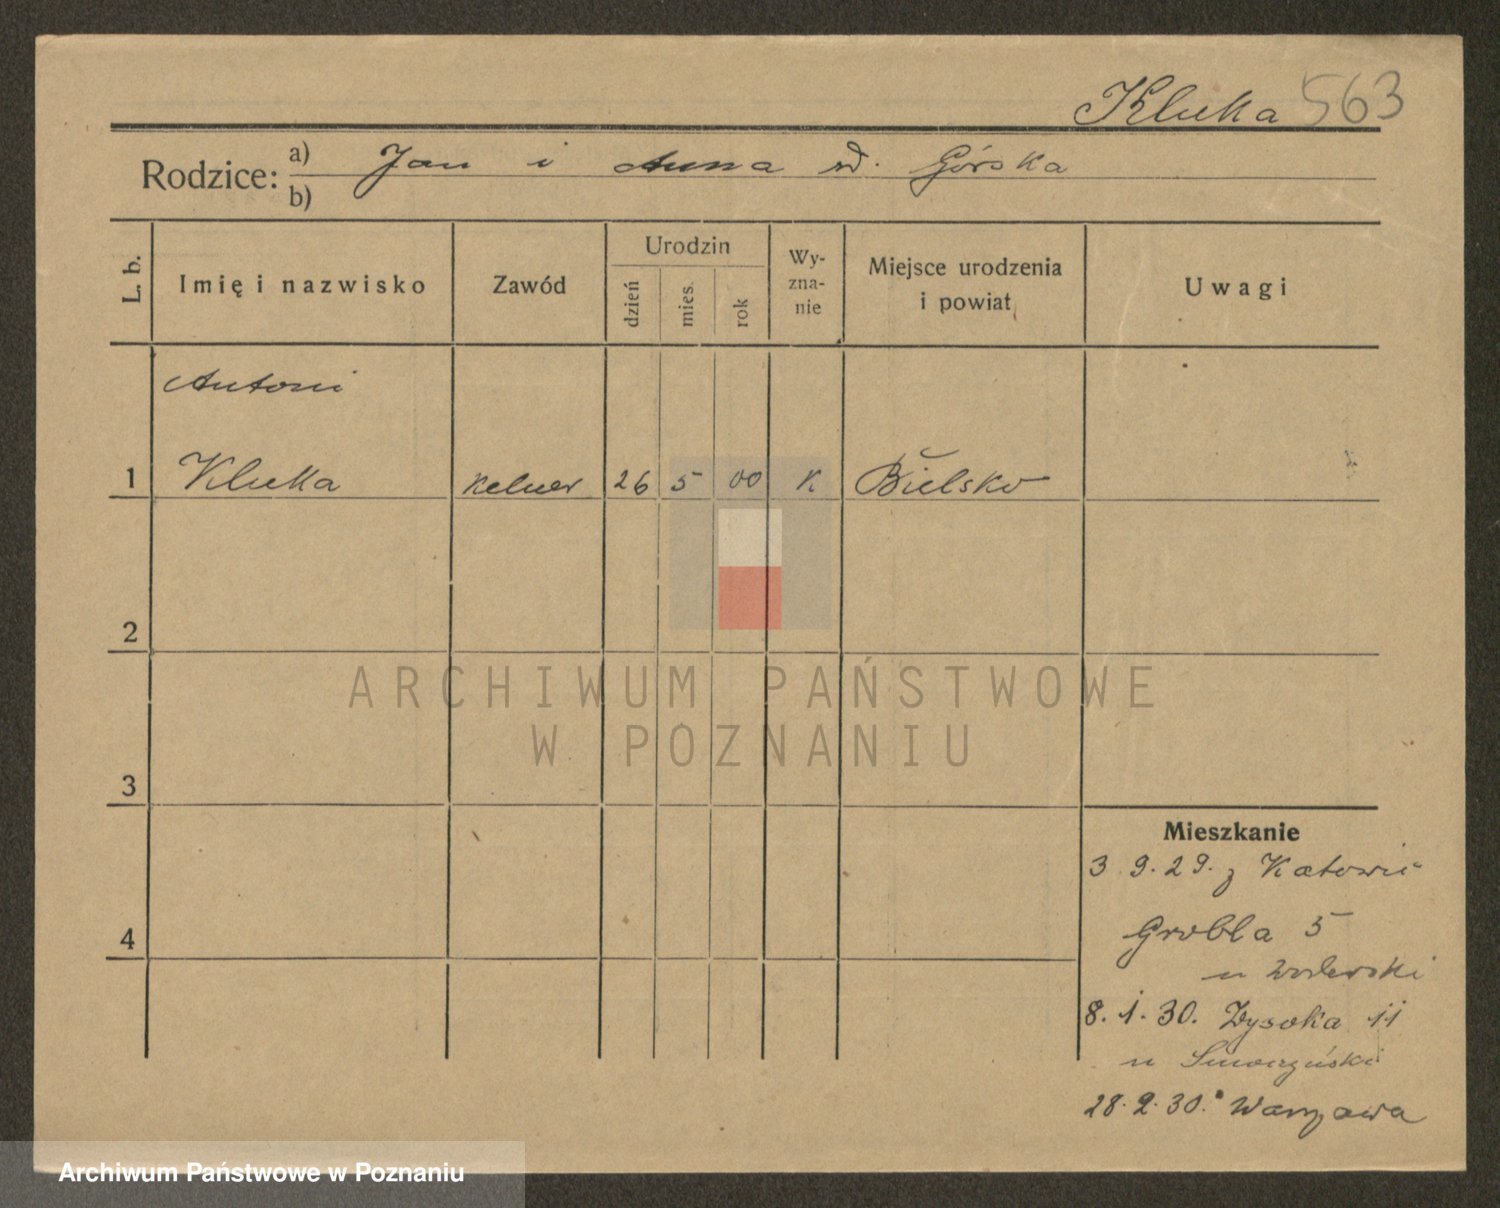 Kluka 563
Rodzice: a) Jan i Anna rd. Górska
b)
L. b. Imię i nazwisko Zawód Urodzin dzień mies. rok Wy-zna-nie Miejsce urodzenia i powiat Uwagi
Antoni
1 Kluka kelner 26 5 00 K Bielsko
2
ARCHIWUM PAŃSTWOWE
W POZNANIU
3
Mieszkanie
3 9. 29. z Katowic
4
Grobla 5
u
8. 1. 30. Wysoka 11
u
28. 2. 30. Warszawa
Archiwum Państwowe w Poznaniu